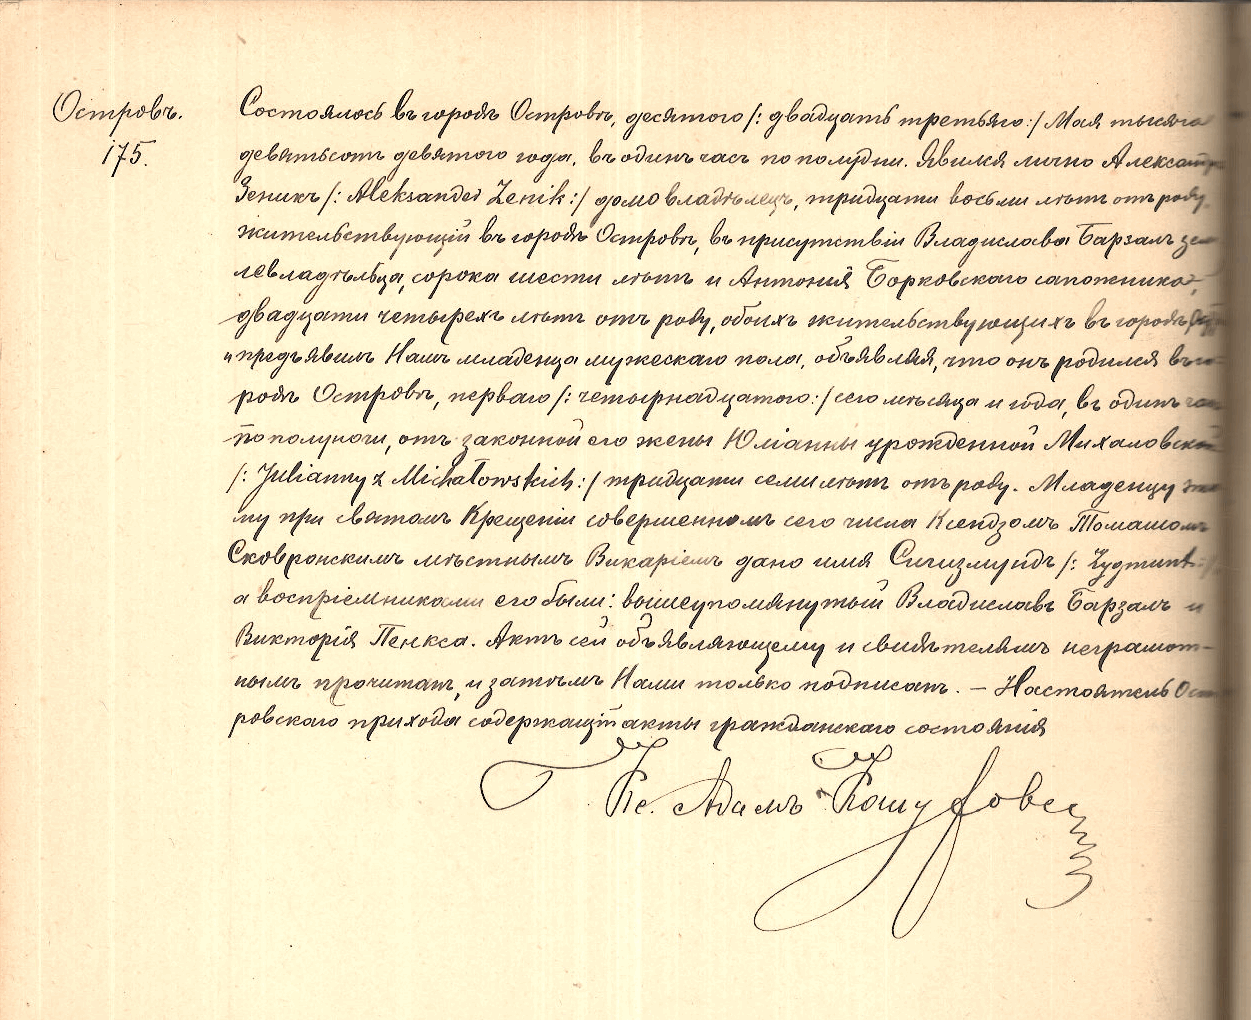 Островъ.
175.
Состоялось въ городѣ Островѣ, десятого /: двадцать третьяго :/ Мая тысяча
девятьсотъ девятого года, въ одинъ часъ по полудни. Явился лично Александръ
Зеникъ /: Aleksander Zenik :/ домовладѣлецъ, тридцати восьми лѣтъ отъ роду,
жительствующій въ городѣ Островѣ, въ присутствіи Владислава Барзалъ зем
левладѣльца, сорока шести лѣтъ и Антонія Борковскаго сапожника,
двадцати четырехъ лѣтъ отъ роду, обоихъ жительствующихъ въ городѣ
и предъявилъ Намъ младенца мужескаго пола, объявляя, что онъ родился въ го-
родѣ Островѣ, перваго /: четырнадцатого :/ сего мѣсяца и года, въ одинъ часъ
по полуночи, отъ законной его жены Юліанны урожденной Михаловской
/: Julianny z Michałowskich :/ тридцати семи лѣтъ отъ роду. Младенцу это
му при святомъ Крещеніи совершенномъ сего числа Ксендзомъ Томашомъ
Сковронскимъ мѣстнымъ Викаріемъ дано имя Сигизмундъ /: Zygmunt :/
а воспріемниками его были: вышеупомянутый Владиславъ Барзалъ и
Викторія Пенкса. Актъ сей объявляющему и свидѣтелямъ неграмот-
нымъ прочитанъ, и затѣмъ Нами только подписанъ. – Настоятель Ост
ровскаго прихода содержащій акты гражданскаго состоянія
Кс. Адамъ